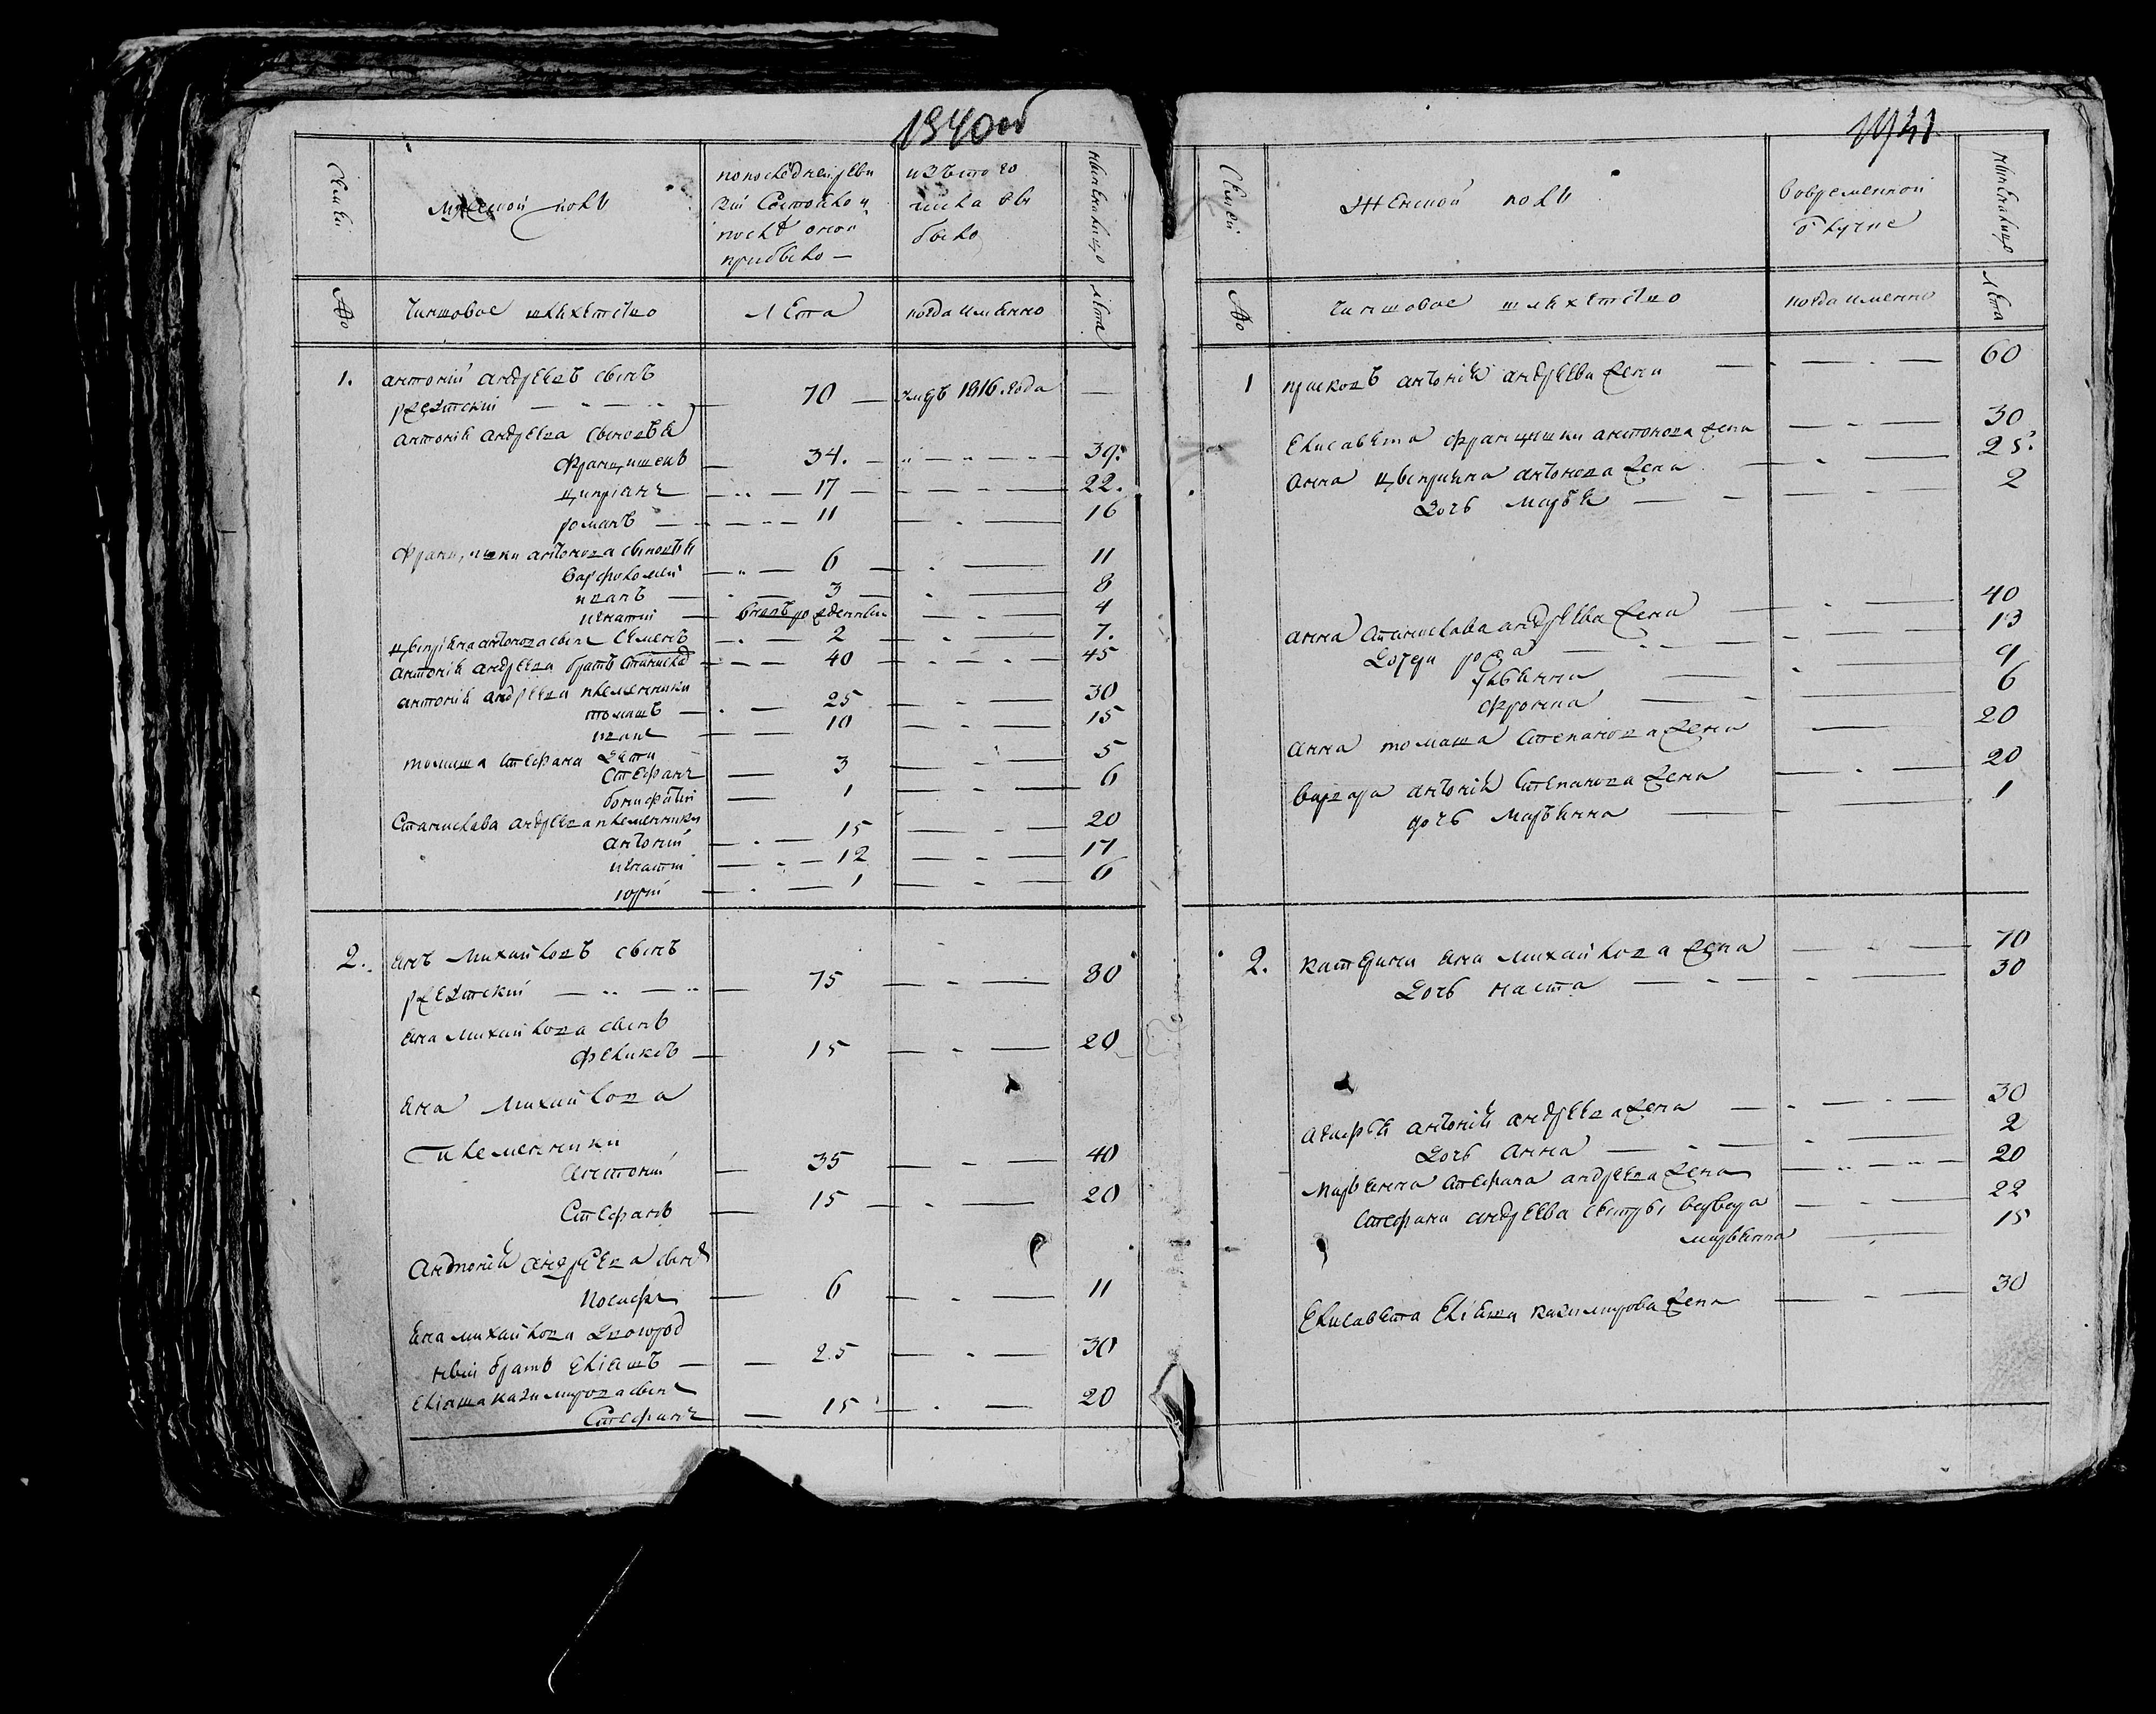 1340об
1341
Семьи
Мужеской полъ
по последней реви
зіи Состояло и
после оной
прибыло —
изъ того
числа вы
было
ныне на лицо
№
Чиншовое шляхетство
Лета
когда именно
лета
1. антоній андреевъ сынъ
70 умеръ 1816 года —
антонія андреева сыновья
Францишекъ — 34. 39.
циприянъ — 17 — 22.
романъ — 11 — 16
Францишка антонова сыновья
варфоломей — 6 — 11
иванъ — 3 — 8
игнатій — вновь рожденный — 4
цыпріяна антонова сынъ Семенъ 2 — 7.
антонія андреева братъ Станиславъ 40 — 45
антонія андреева племянники
томашъ — 25 — 30
иванъ — 10 — 15
томаша Стефана дети
Стефанъ — 3 — 5
бонифатій — 1 — 6
Станислава андреева племянники
антоній — 15 — 20
игнатій — 12 — 17
юрій — 1 — 6
2. янъ михайловъ сынъ
75 — 80
яна михайлова сынъ
Феликсъ — 15 — 20
яна михайлова
племянники
Антоній — 35 — 40
Стефанъ — 15 — 20
Антонія андреева сынъ
Иосифъ — 6 — 11
яна михайлова двоюрод
ный братъ еліяшъ — 25 — 30
еліяша казимирова сынъ
Стефанъ — 15 — 20
Семьи
Женской полъ
во временной
отлучке
ныне на лице
№
Чиншовое шляхетство
когда именно
Лета
1 антонія андреева жена — 60
Елисавета францишка антонова жена — 30
Анна цыприяна антонова жена — 25.
Дочь Марья — 2
анна Станислава андреева жена — 40
Дочери роза — 13
— 9
— 6
анна томаша Степанова жена — 20
варвара антонія Степанова жена — 20
дочь марьянна — 1
2. катерина яна михайлова жена — 70
Дочь наста — 30
агафья антонія андреева жена — 30
Дочь анна — 2
марьянна стефана андреева жена — 20
Стефана андреева сестры варвара — 22
марьянна — 15
Елисавета Еліяша казимирова жена — 30